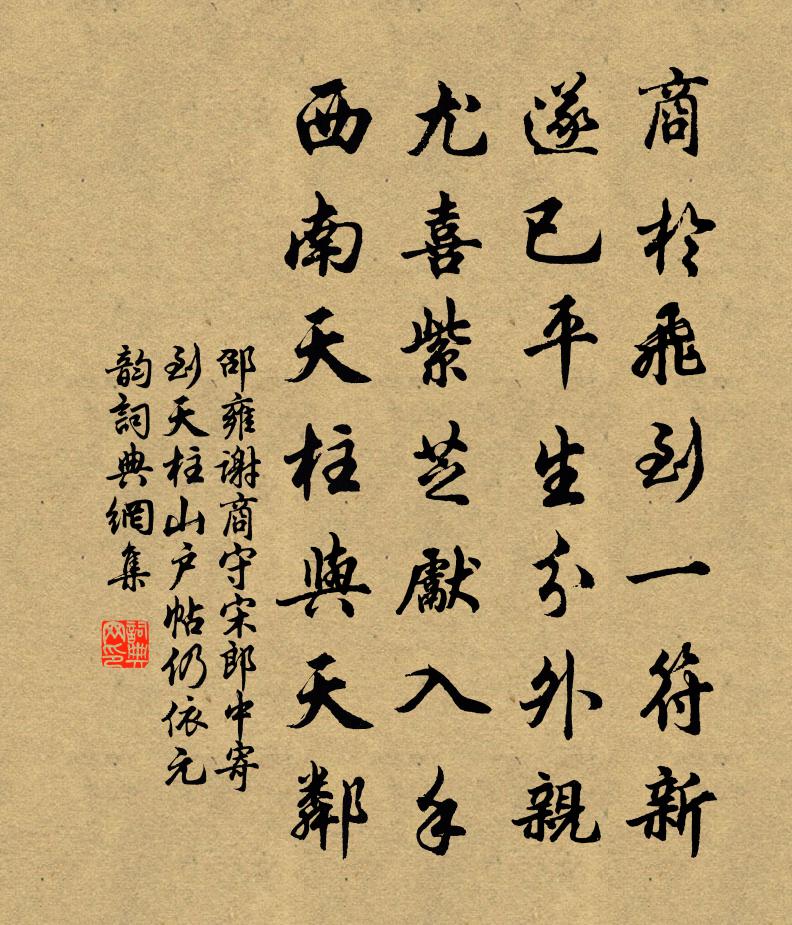 商於飛到一符新
遂已平生分外親
尤喜紫芝獻入手
西南天柱與天鄰
邵雍謝商守宋郎中寄
到天柱山户帖仍依元
韵詞典網集
詞典
网印